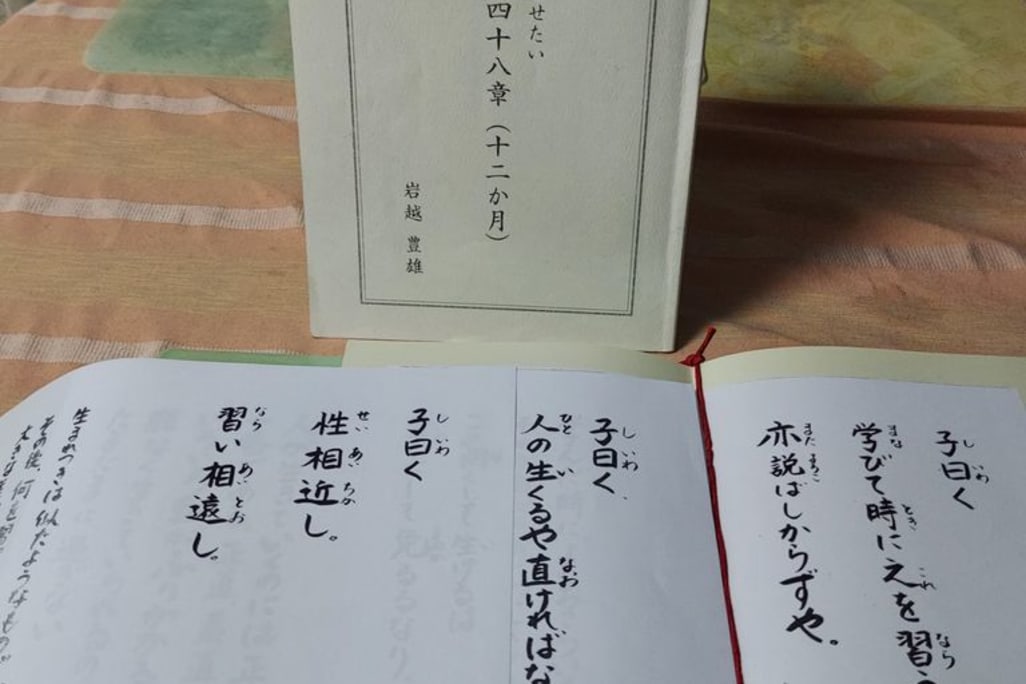 せたい
四十八章(十二か月)
岩越 豊雄
子曰く
学びて時にえを習う
亦説ばしからずや。
子曰く、
人の生くるや直ければな
子曰く
性相近し。
習い相遠し。
生まれつきは似たようなもの。
その後、何を習